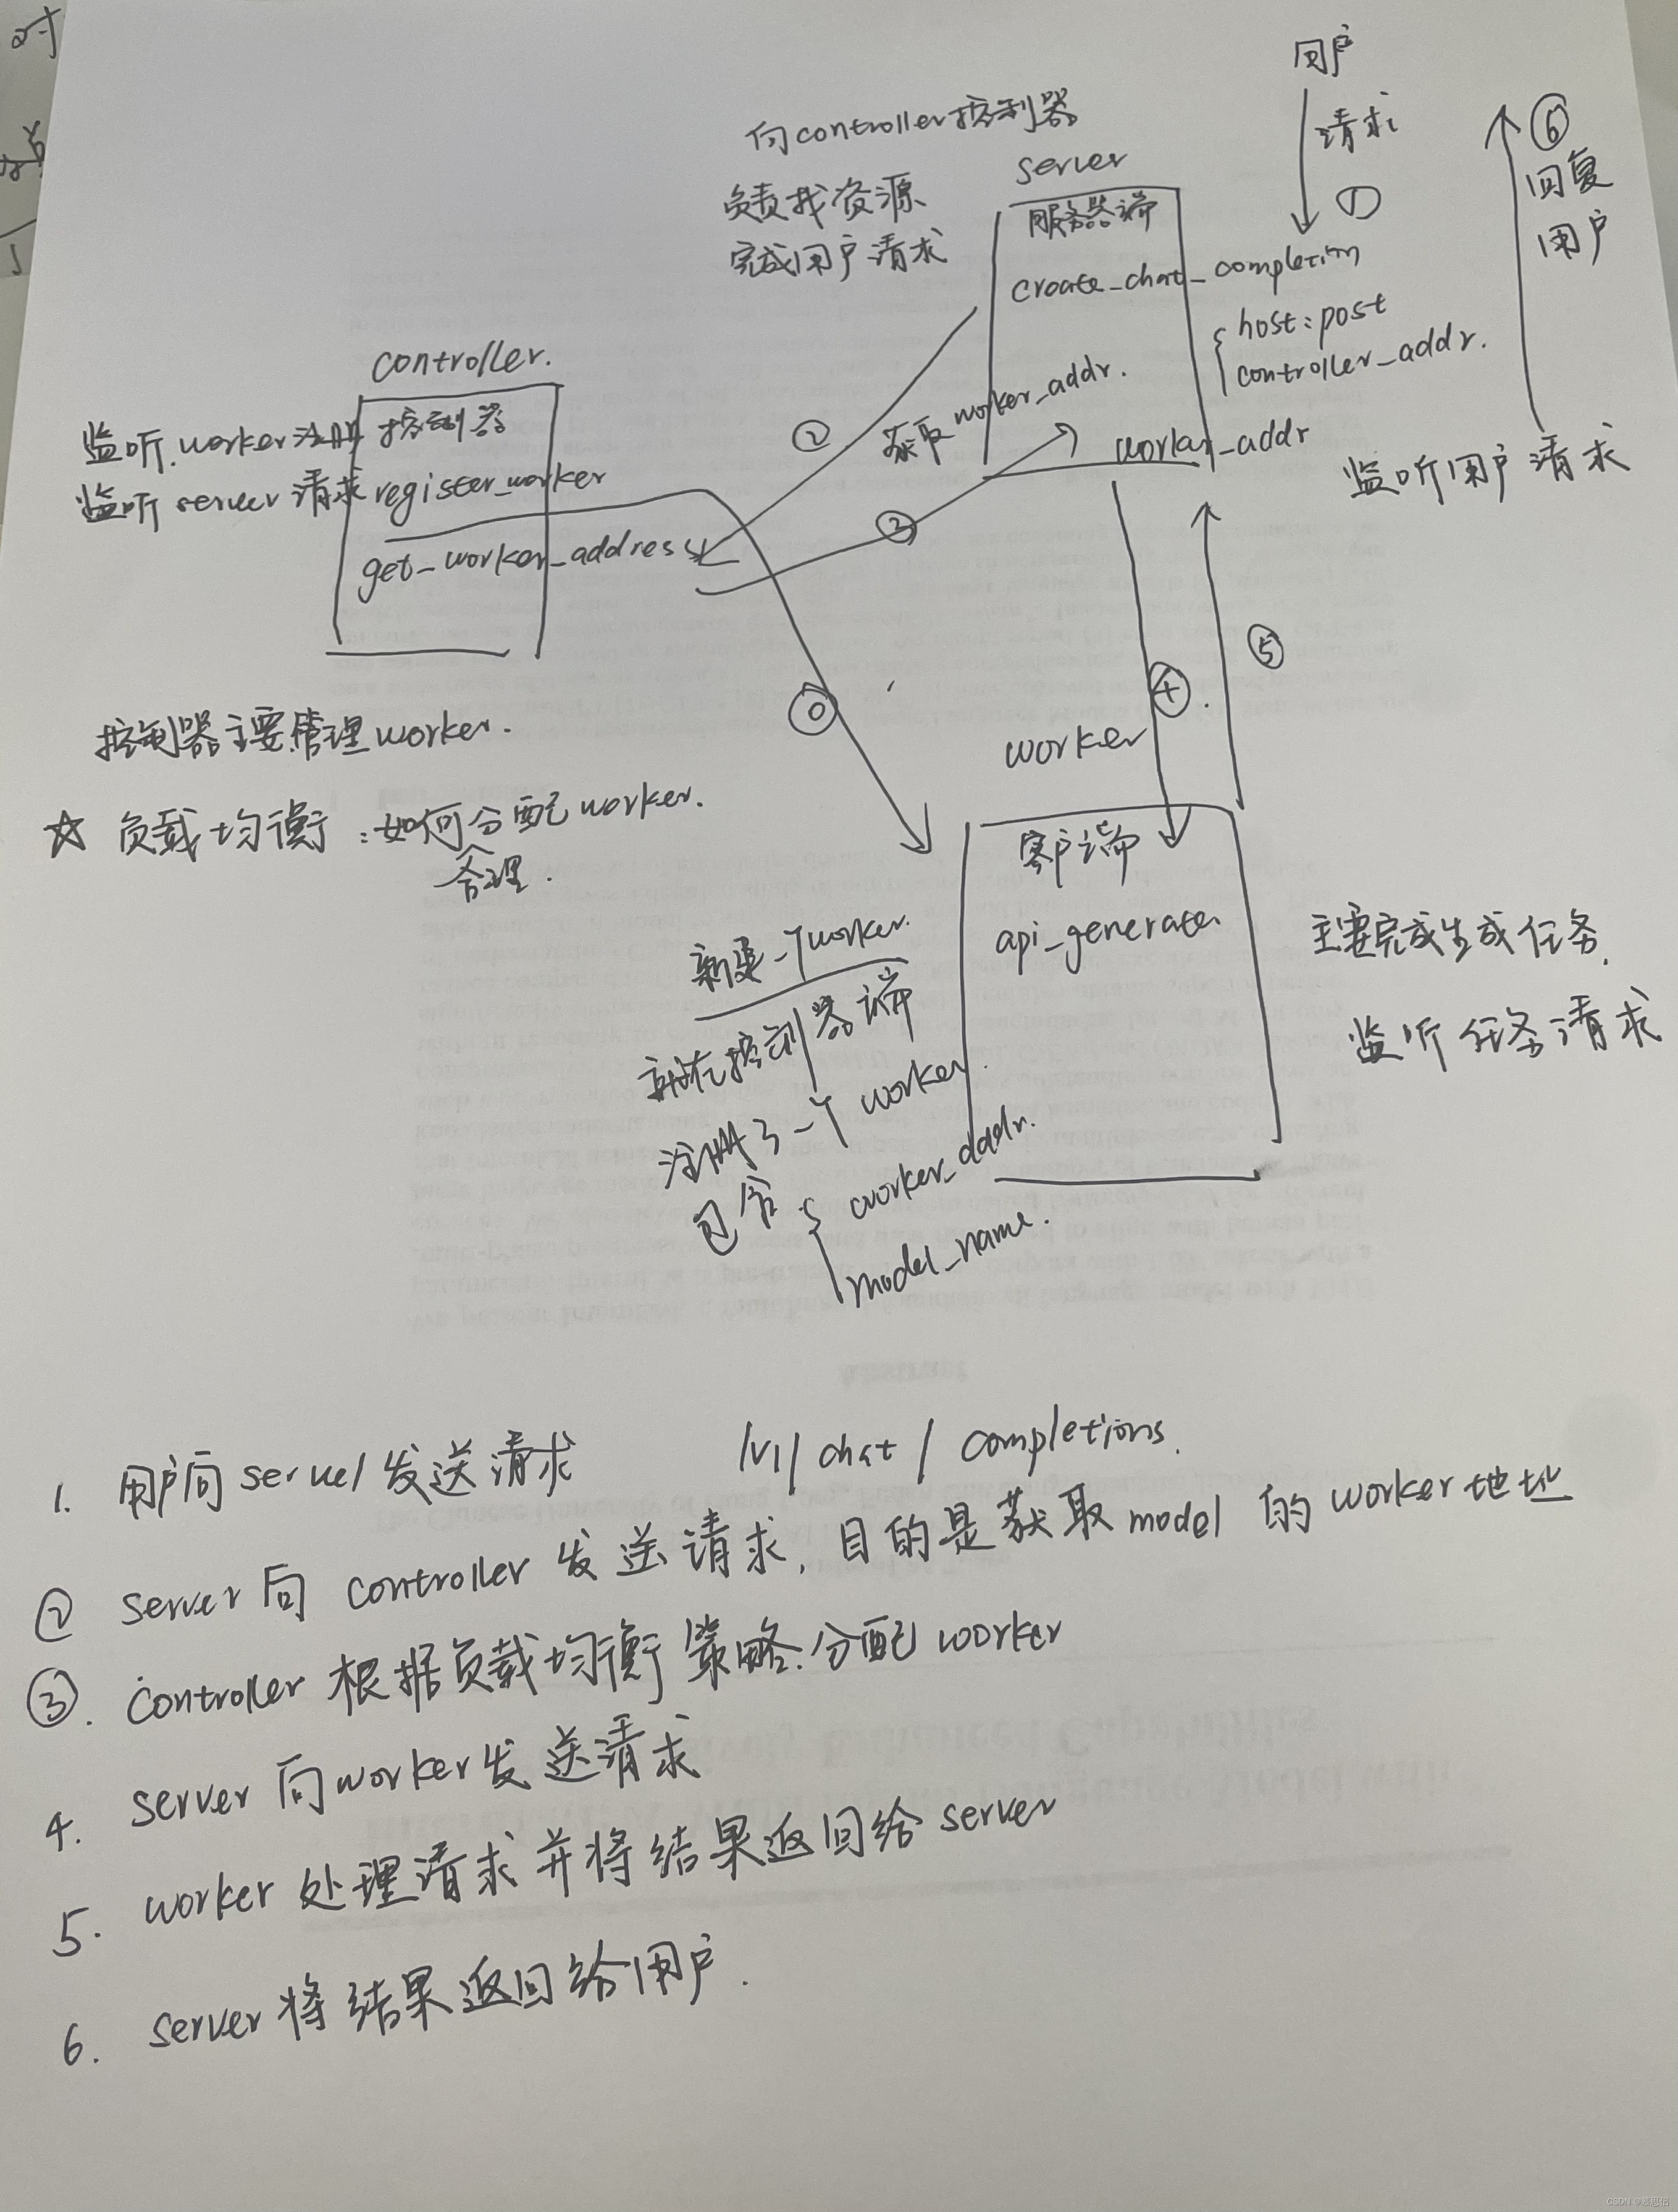 用户
请求
①
⑥
回复
用户
向controller控制器
负责找资源
完成用户请求
server
服务器端
create_chat_completion
host:post
controller_addr.
worker_addr
监听用户请求
controller.
控制器
监听worker注册
监听server请求
register_worker
get_worker_address
②
获取worker_addr.
③
⓪
④
⑤
控制器主要管理worker.
☆ 负载均衡:如何分配worker.
合理.
worker
客户端
api_generate
主要完成生成任务.
监听任务请求
新建一个worker.
就在控制器端
注册了一个worker.
包含 { worker_addr.
model_name.
1. 用户向server发送请求 /v1/chat/completions.
② server向controller发送请求,目的是获取model的worker地址
③. controller根据负载均衡策略分配worker
4. server向worker发送请求
5. worker处理请求并将结果返回给server
6. server将结果返回给用户.
Abstract